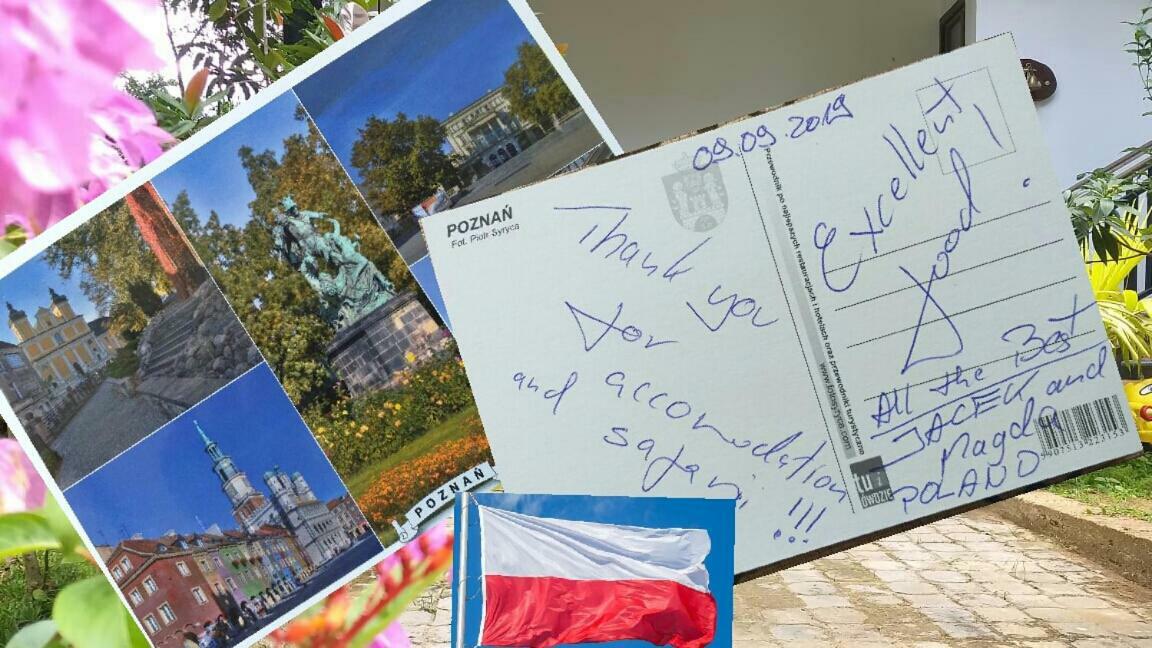 POZNAŃ
POZNAŃ
Fot. Piotr Syryca
09.09.2019
Thank
for You
accomodation
and safari !!!
Przewodnik po najlepszych restauracjach i hotelach oraz przewodniki turystyczne
www.fotosyryca.com
Excellent
food !
All the Best
JACEK and
Magda
POLAND
tu i
ÓWDZIE